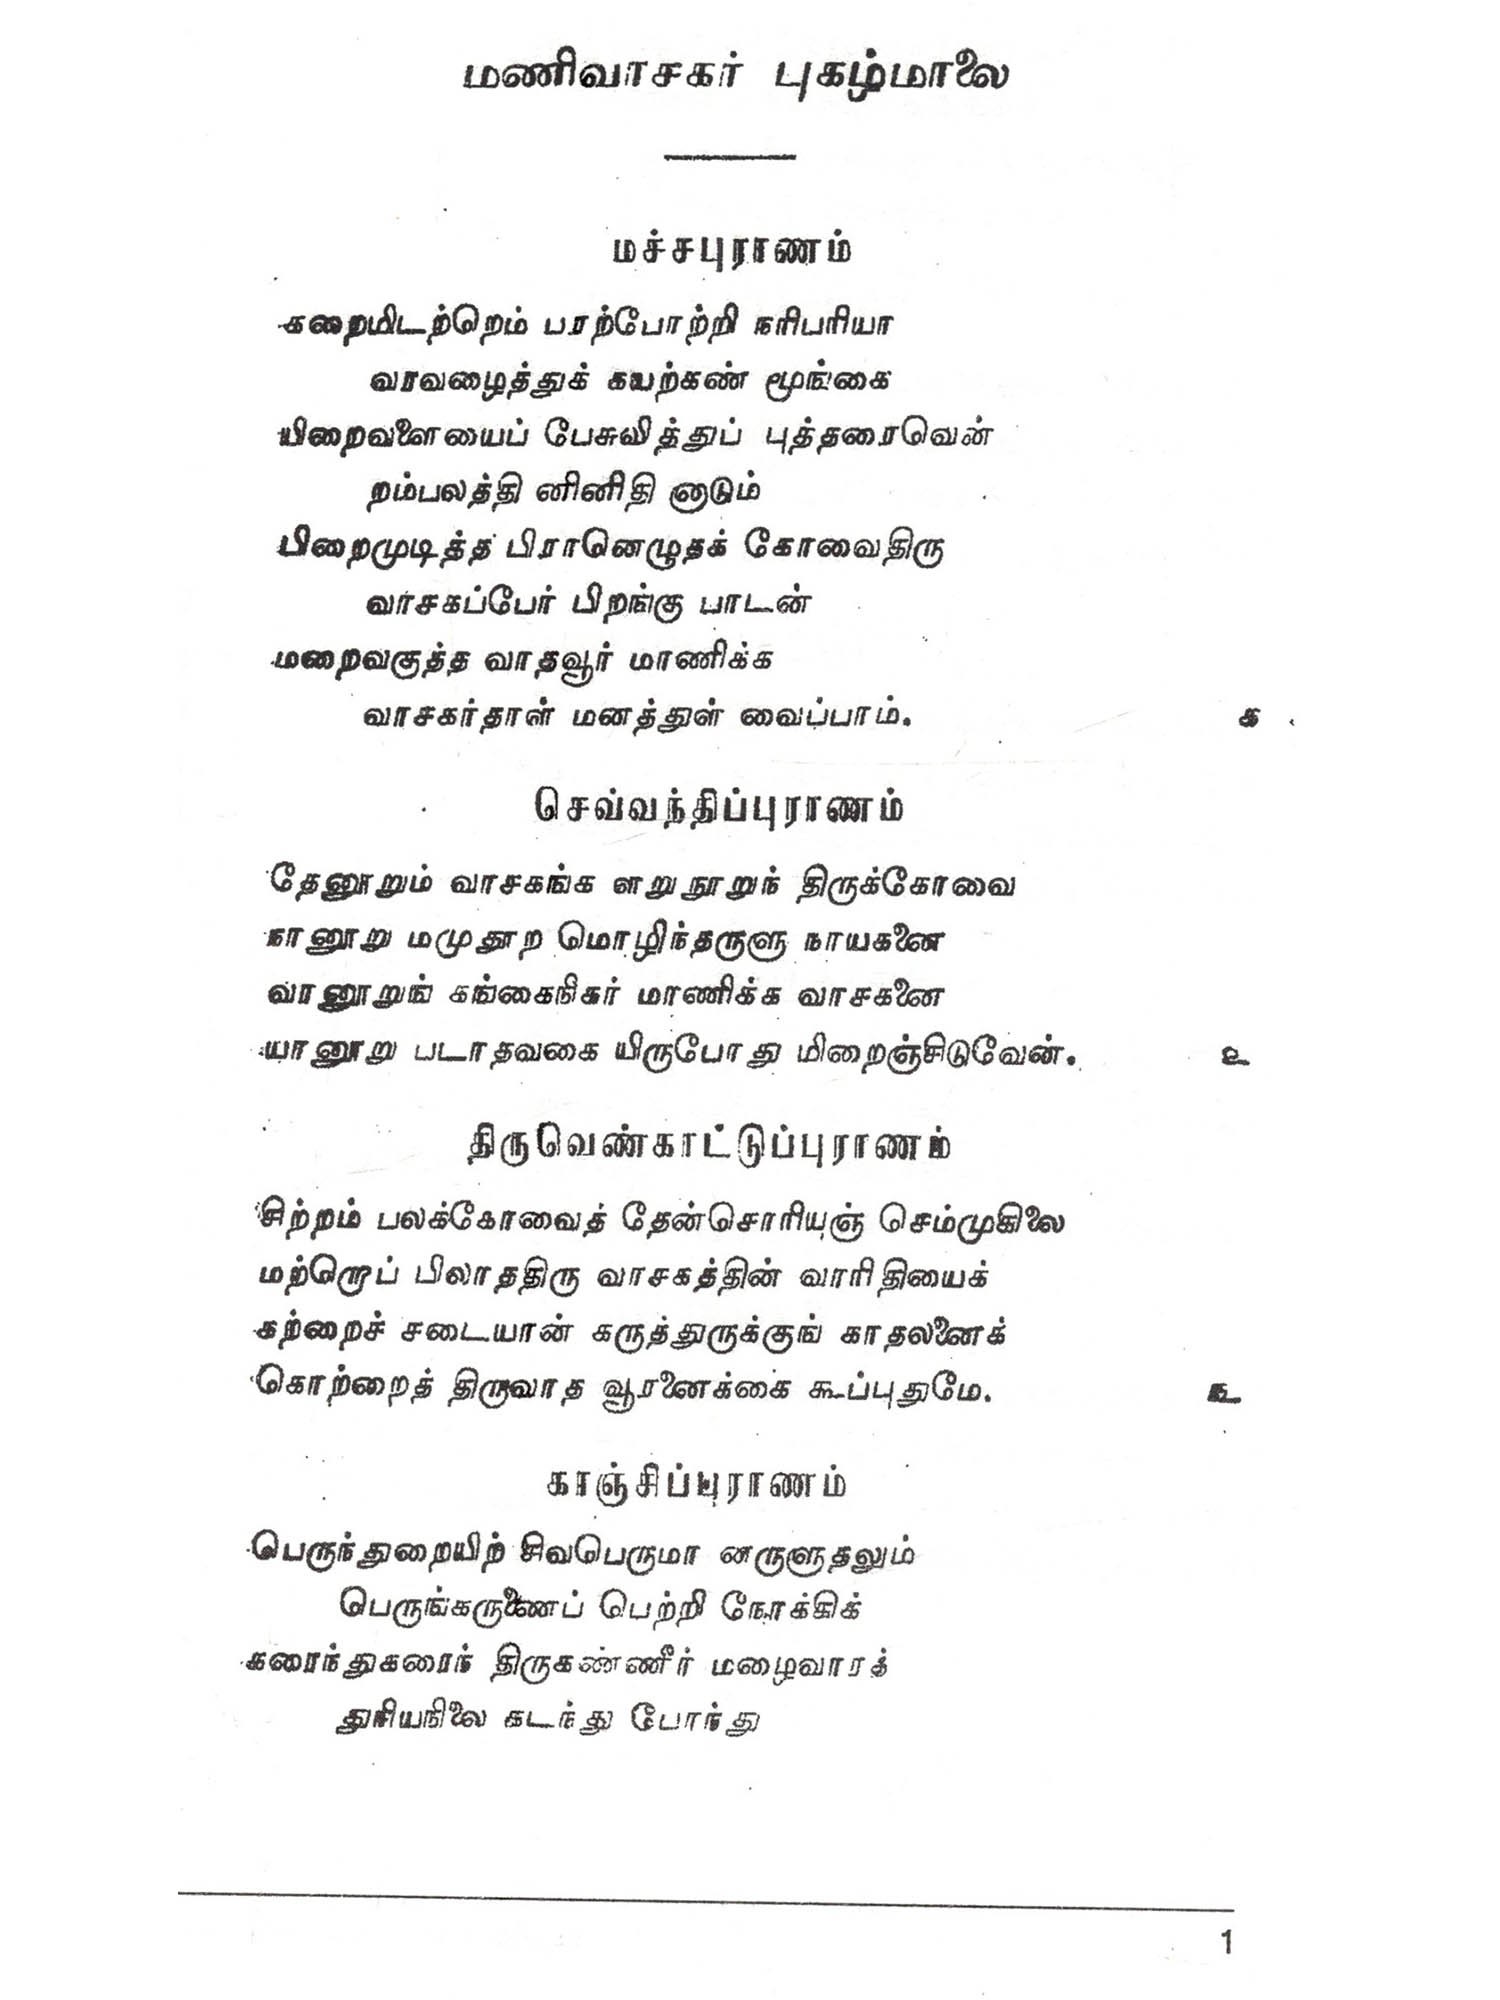 மணிவாசகர் புகழ்மாலை
மச்சபுராணம்
கறைமிடற்றெம் பரற்போற்றி நரிபரியா
வரவழைத்துக் கயற்கண் மூங்கை
யிறைவளையைப் பேசுவித்துப் புத்தரைவென்
றம்பலத்தி னினிதி னாடும்
பிறைமுடித்த பிரானெழுதக் கோவைதிரு
வாசகப்பேர் பிறங்கு பாடன்
மறைவகுத்த வாதவூர் மாணிக்க
வாசகர்தாள் மனத்துள் வைப்பாம். க
செவ்வந்திப்புராணம்
தேனூறும் வாசகங்க ளறுநூறுந் திருக்கோவை
நானூறு மமுதூற மொழிந்தருளு நாயகனை
வானூறுங் கங்கைநிகர் மாணிக்க வாசகனை
யானூறு படாதவகை யிருபோது மிறைஞ்சிடுவேன். உ
திருவெண்காட்டுப்புராணம்
சிற்றம் பலக்கோவைத் தேன்சொரியுஞ் செம்முகிலை
மற்றொப் பிலாததிரு வாசகத்தின் வாரிதியைக்
கற்றைச் சடையான் கருத்துருக்குங் காதலனைக்
கொற்றைத் திருவாத வூரனைக்கை கூப்புதுமே. ௩
காஞ்சிப்புராணம்
பெருந்துறையிற் சிவபெருமா னருளுதலும்
பெருங்கருணைப் பெற்றி நோக்கிக்
கரைந்துகரைந் திருகண்ணீர் மழைவாரத்
துரியநிலை கடந்து போந்து
1